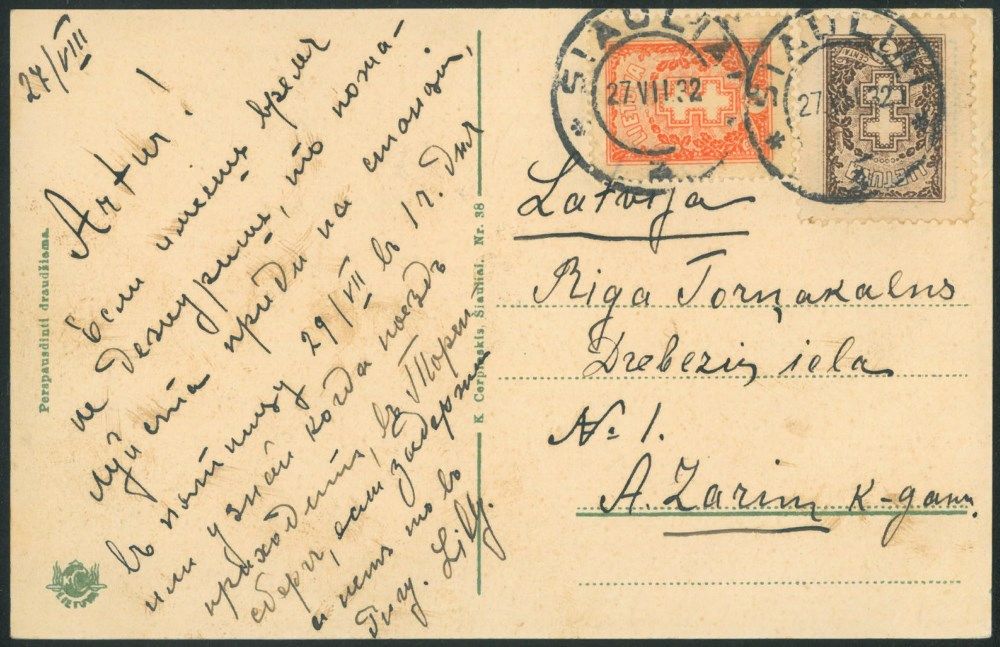 27/VIII
Artur!
Если имеешь время
не дежуришь, то пожа-
луйста приди на станции,
въ пятницу 29/VII въ 1 г. дня
или узнай когда поездъ
приходитъ, въ Торен
сберг, если задержи
а нетъ то въ
Ригу. Lilly.
Perspausdinti draudžiama.
K. Cerpinskis, Šiauliai. Nr. 38
LIETUVA
SIAULIAI
27.VII.32
LIETUVA
SIAULIAI
27 32
LIETUVA
Latvija
Riga Torņakalns
Drebeziņ iela
№ 1.
A. Zariņ k-gam.